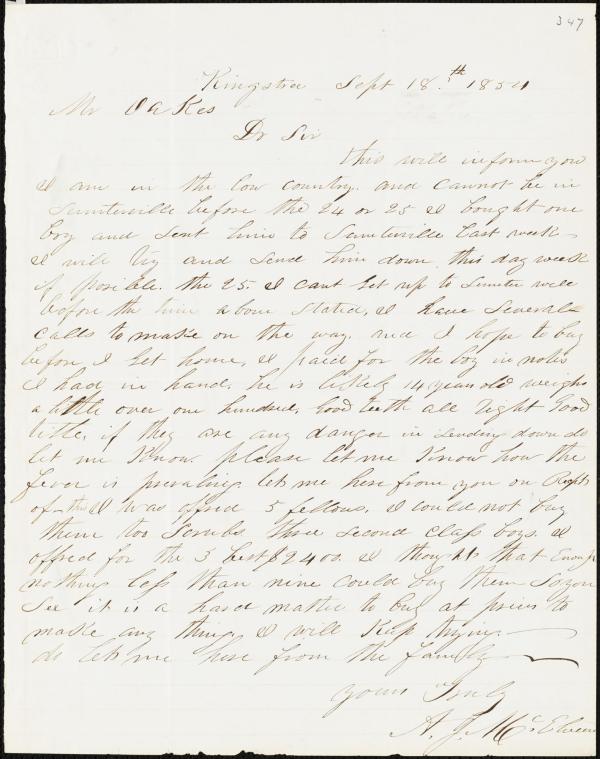 347
Kingstree Sept 18th 1854
Mr Oakes
Dr Sir
this will inform you
I am in the low country. and cannot be in
Sumterville before the 24 or 25 I bought one
boy and sent him to Sumterville Last week
I will try and send him down this day week
if posible. the 25. I cant Get up to Sumterville
before the time above stated, I have several
calls to make on the way. and I hope to buy
before I Get home, I paid for the boy in notes
I had in hand. he is likely 14 years old weighs
a little over one hundred, Good teeth all right Good
title, if they are any danger in sending down do
let me Know. please let me Know how the
fever is prevaling. let me here from you on Recpt
of this I was offred 5 fellows. I could not buy
them two Scrubs three second class boys. I
offred for the 3 best $2400. I thought that Enough
nothing less than nine could buy them So you
See it is a hard matter to buy at prices to
make any thing. I will Keep trying.
do let me here from the family
yours Truly
A. J. McElveen